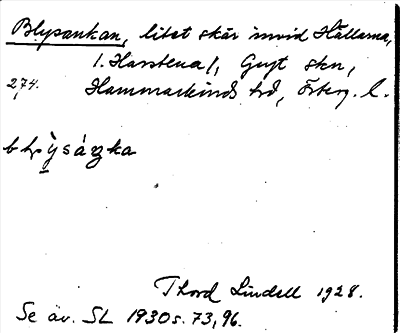 Blysankan, litet skär invid Hållerna,
/. Harstena/, Gryt skn,
274. Hammarkinds hd, Österg. l.
Thord Lindell 1928.
Se äv. SL 1930 s. 73, 96.